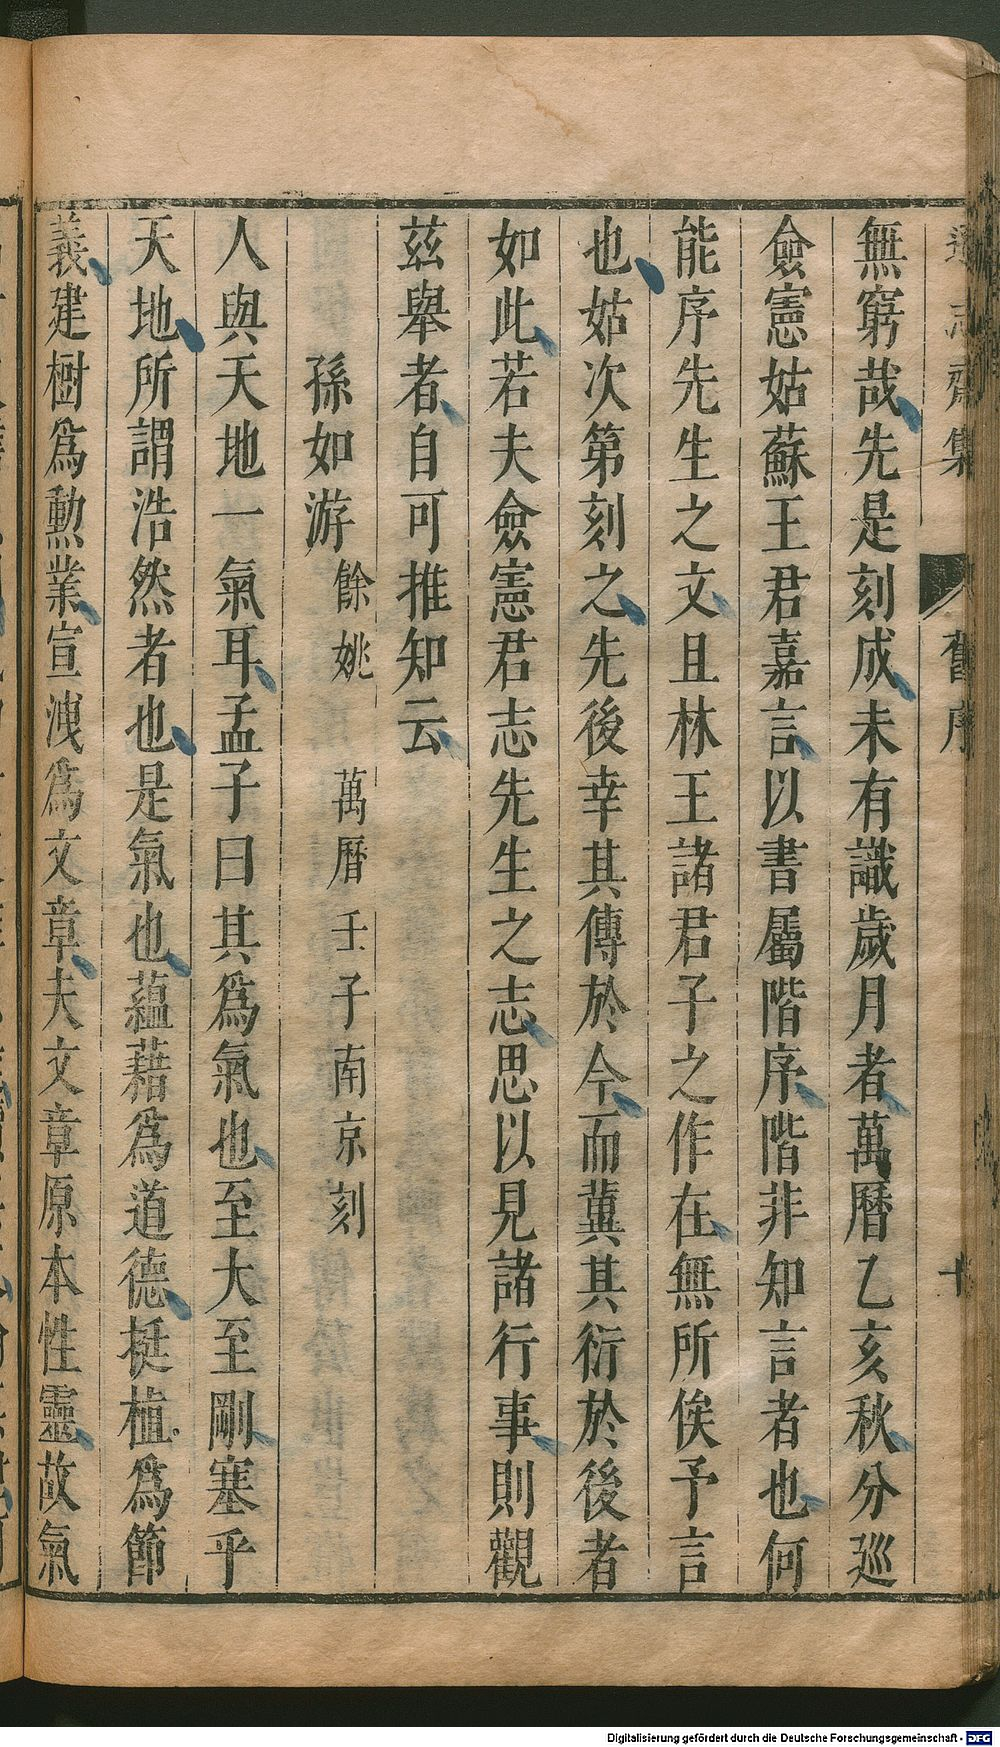 遜志齋集 舊序 十
無窮哉先是刻成未有識歲月者萬曆乙亥秋分廵
僉憲姑蘇王君嘉言以書屬階序階非知言者也何
能序先生之文且林王諸君子之作在無所俟予言
也姑次第刻之先後幸其傳於今而冀其衍於後者
如此若夫僉憲君志先生之志思以見諸行事則觀
茲舉者自可推知云
孫如游 餘姚 萬曆壬子南京刻
人與天地一氣耳孟子曰其爲氣也至大至剛塞乎
天地所謂浩然者也是氣也蘊藉爲道德挺植爲節
義建樹爲勳業宣洩爲文章夫文章原本性靈故氣
Digitalisierung gefördert durch die Deutsche Forschungsgemeinschaft - DFG